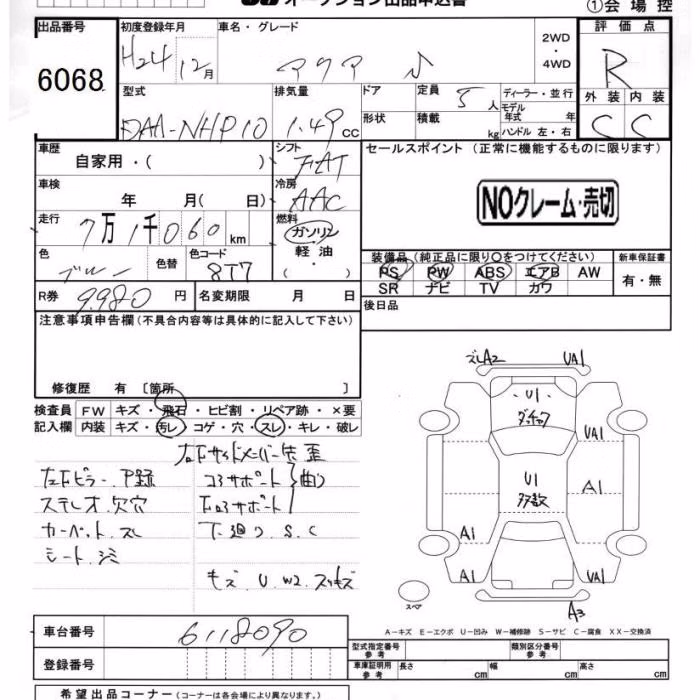 オークション出品申込書
①会場控
出品番号 初度登録年月 車名・グレード 2WD ・ 4WD 評価点
6068 H24 12月 アクア R
型式 排気量 ドア 定員 5人 ディーラー・並行 外装 内装
DAA-NHP10 1.49cc 形状 積載 kg モデル年式 年 ハンドル 左・右 C C
車歴 自家用・( ) シフト FAT セールスポイント (正常に機能するものに限ります)
車検 年 月( 日) 冷房 AAC NOクレーム・売切
走行 7万1千060km 燃料 ガソリン 軽油 ・( )
色 ブルー 色替 色コード 8T7 装備品(純正品に限り〇をつけてください) 新車保証書
PS PW ABS エアB AW 有・無
R券 9980円 名変期限 月 日 SR ナビ TV カワ
注意事項申告欄(不具合内容等は具体的に記入して下さい) 後日品
修復歴 有 〔箇所 〕
検査員 FW キズ・飛石・ヒビ割・リペア跡・×要
記入欄 内装 キズ・汚レ・コゲ・穴・スレ・キレ・破レ
左Fピラー
ステレオ欠穴 コアサポート
カーペット スレ 下廻り S.C
シート シミ
キズ U W2 スリキズ
ズレA2 UA1
U1
UA1
U1 A1
多数
A1
A1 UA1
スペア A3
A-キズ E-エクボ U-凹み W-補修跡 S-サビ C-腐食 XX-交換済
車台番号 6118090 型式指定番号 参考 類別区分番号 参考
登録番号 車庫証明用 参考 長さ cm 幅 cm 高さ cm
希望出品コーナー(コーナーは各会場により異なります。)